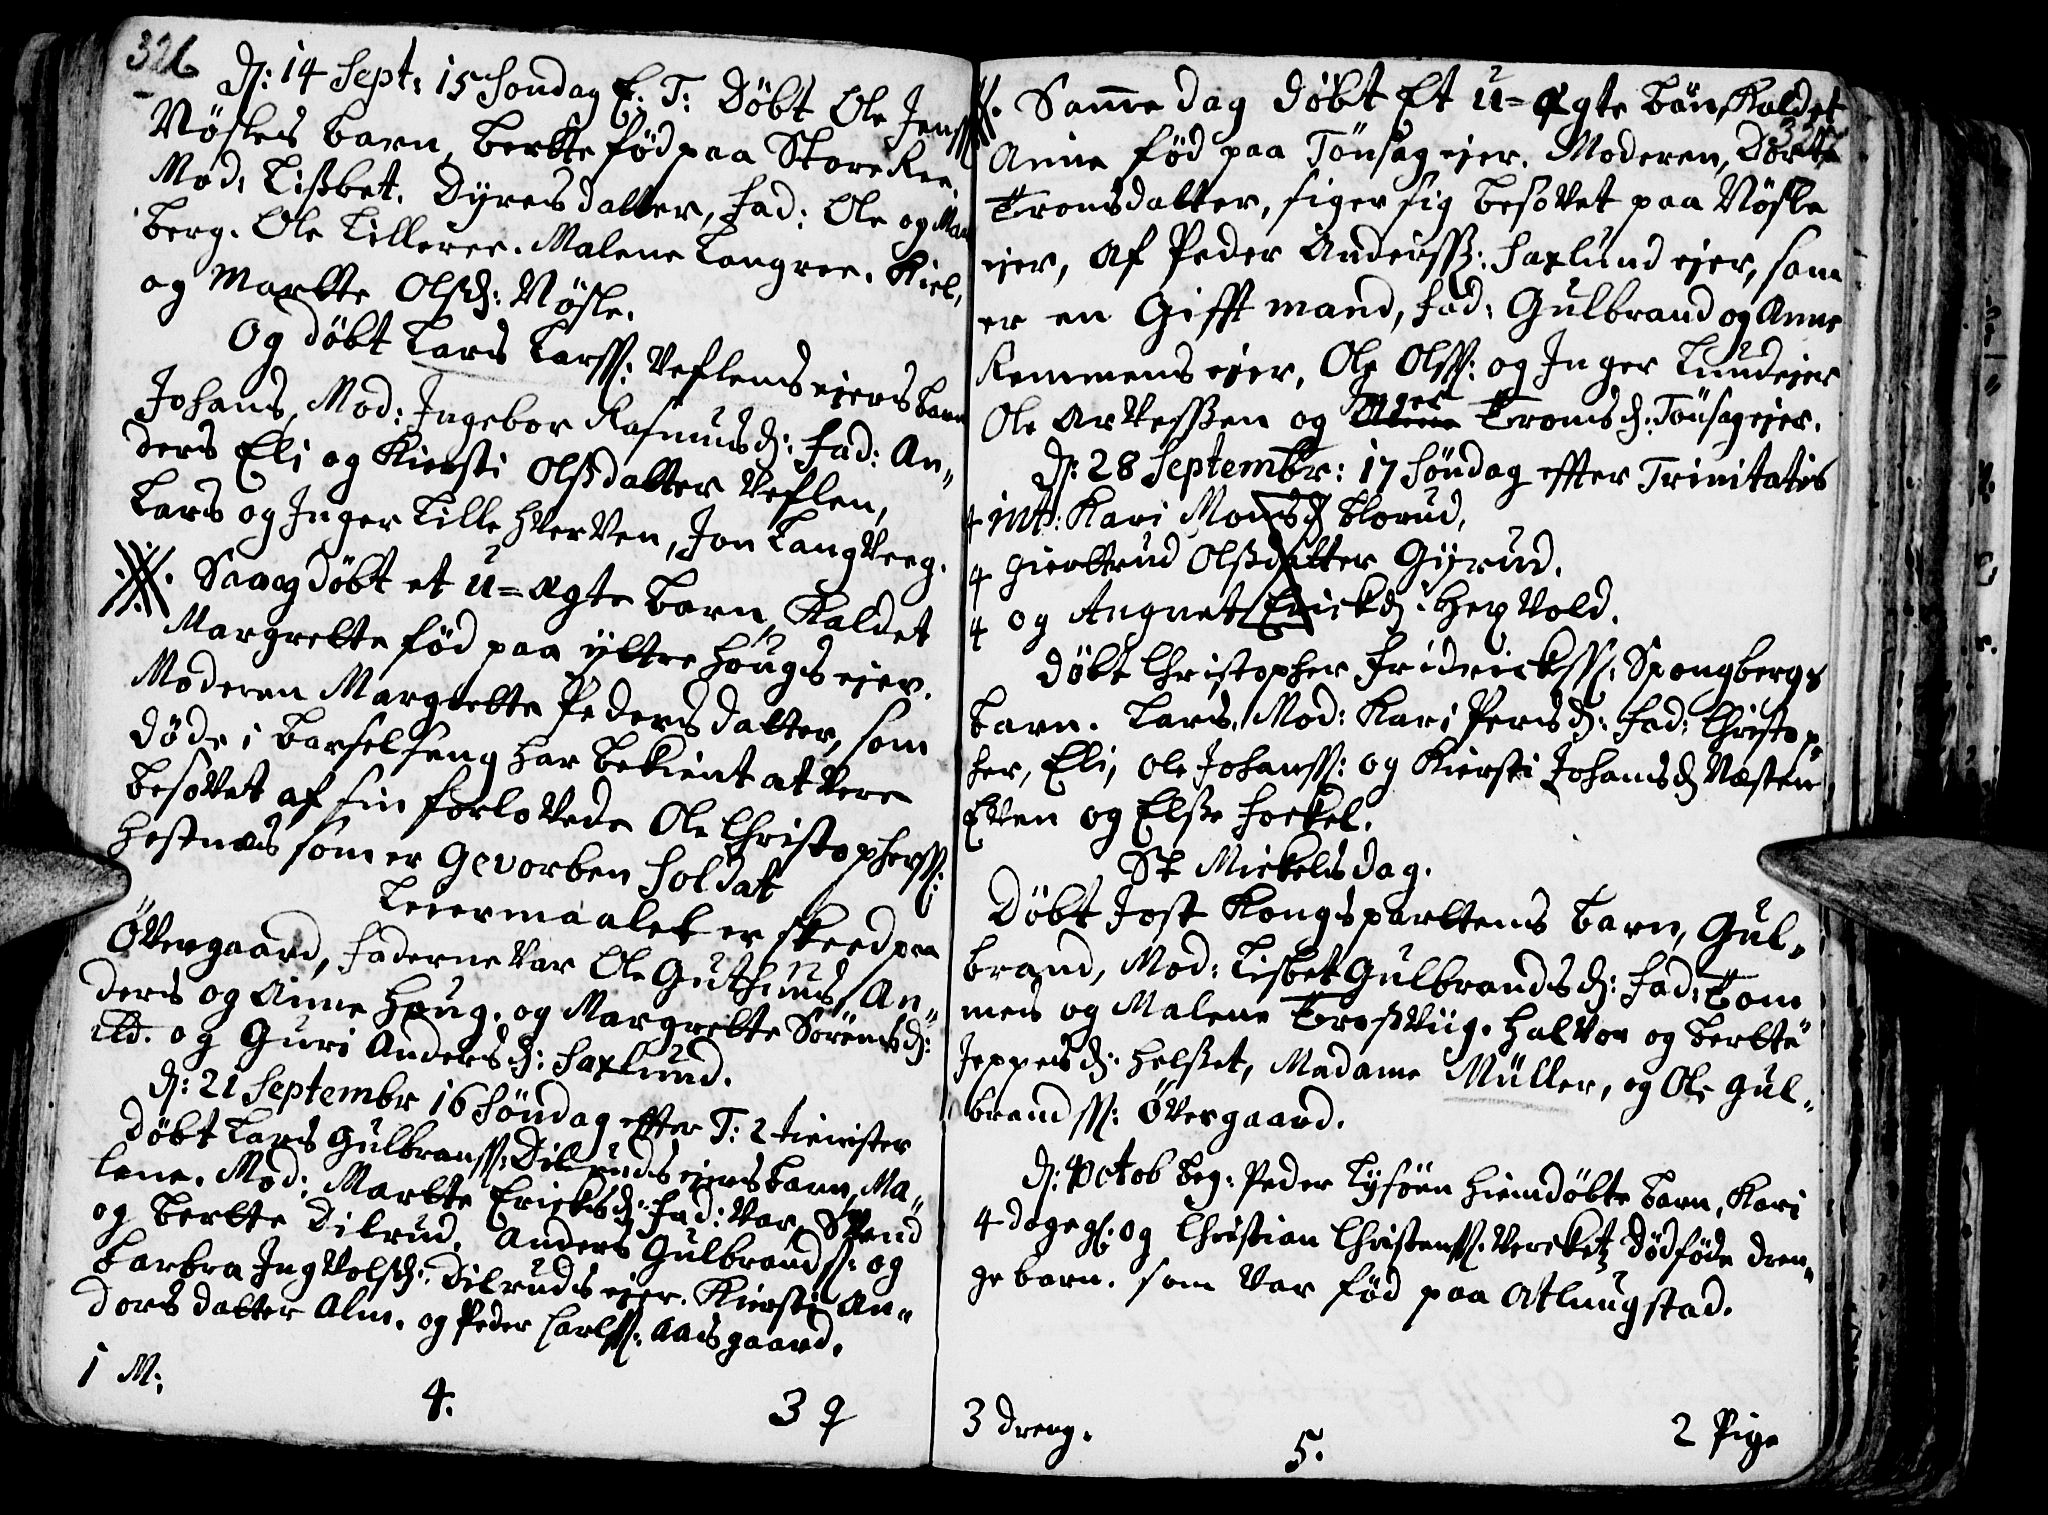 326
D: 14 Sept: 15 Søndag E: T: Døbt Ole Jenss:
Nøsles barn, Berthe fød paa Store Ree.
Mod: Lisbet. Dyresdatter, fad: Ole og
berg. Ole Lilleree. Malene Langree. Kiel,
og Marthe Olsd: Nøsle.
Og døbt Lars Larss: Veflens ejers barn
Johans, Mod: Ingebor Rasmusd: fad: An-
ders Eli og Kiersti Olsdatter Veflen,
Lars og Inger Lille Hverven, Jon Langverg.
Saa og døbt et u=ægte barn, kaldet
Margrethe fød paa yttre Hougs ejer.
Moderen Margrethe Pedersdatter, som
døde i barselseng har bekient at vere
besovet af sin forlovede Ole Christophers:
Hestnæs som er Gevorben Soldat
Leiermaalet er skeed paa
Øvergaard, fadderne var Ole Guthuus, An-
ders og Anne Houg. og Margrethe Sørensd:
ibd. og Guri Andersd: Saxlund.
D: 21 Septembr 16 Søndag effter T: 2
Døbt Lars Gulbranss: Dilruds ejers barn, Ma-
lene. Mod: Marthe Ericksd: fad: var, Svend
og Berthe Dilrud. Anders Gulbrandss: og
Barbra Ingvolsd: Dilruds ejer. Kiersti An-
dorsdatter Alm. og Peder Carlss: Aasgaard.
1 M: 4. 3 ♀
Samme dag døbt Et u=ægte barn, kaldet
Anne fød paa Tønsag ejer. Moderen, Dorthe
Tronsdatter, siger sig besovet paa Nøsle
ejer, af Peder Anderss: Saxlund ejer, som
er en Gifft mand, fad: Gulbrand og Anne
Remmens ejer, Ole Olss: og Inger Lundejer
Ole Arvessen og Inger Tronsd: Tønsag ejer.
D: 28 Septembr: 17 Søndag effter Trinitatis
4 int: Kari Monsd Blorud,
4 Giertrud Olsdatter Gijrud.
4 og Angnet Erickd: Hexvold.
Døbt Christopher Fridrickss: Spongbergs
barn. Lars. Mod: Kari Persd: fad: Christop-
her, Eli, Ole Johanss: og Kiersti Johansd Næsten
Even og Else Fockel.
St Mickelsdag.
Døbt Jost Kongsparttens barn, Gul-
brand, Mod: Lisbet Gulbrandsd: fad: Tom
mes og Malene Troßvüg. Halvor og Berthe
Jeppesd: Helset, Madame Müller, og Ole Gul-
brandss: Øvergaard.
D: 4 Octob beg: Peder Lysøen hiemdøbte barn, Kari
4 dage gl: og Christian Christenss: Verketz dødføde dren-
ge barn. som var fød paa Atlungstad.
3 dreng. 5. 2 Pige